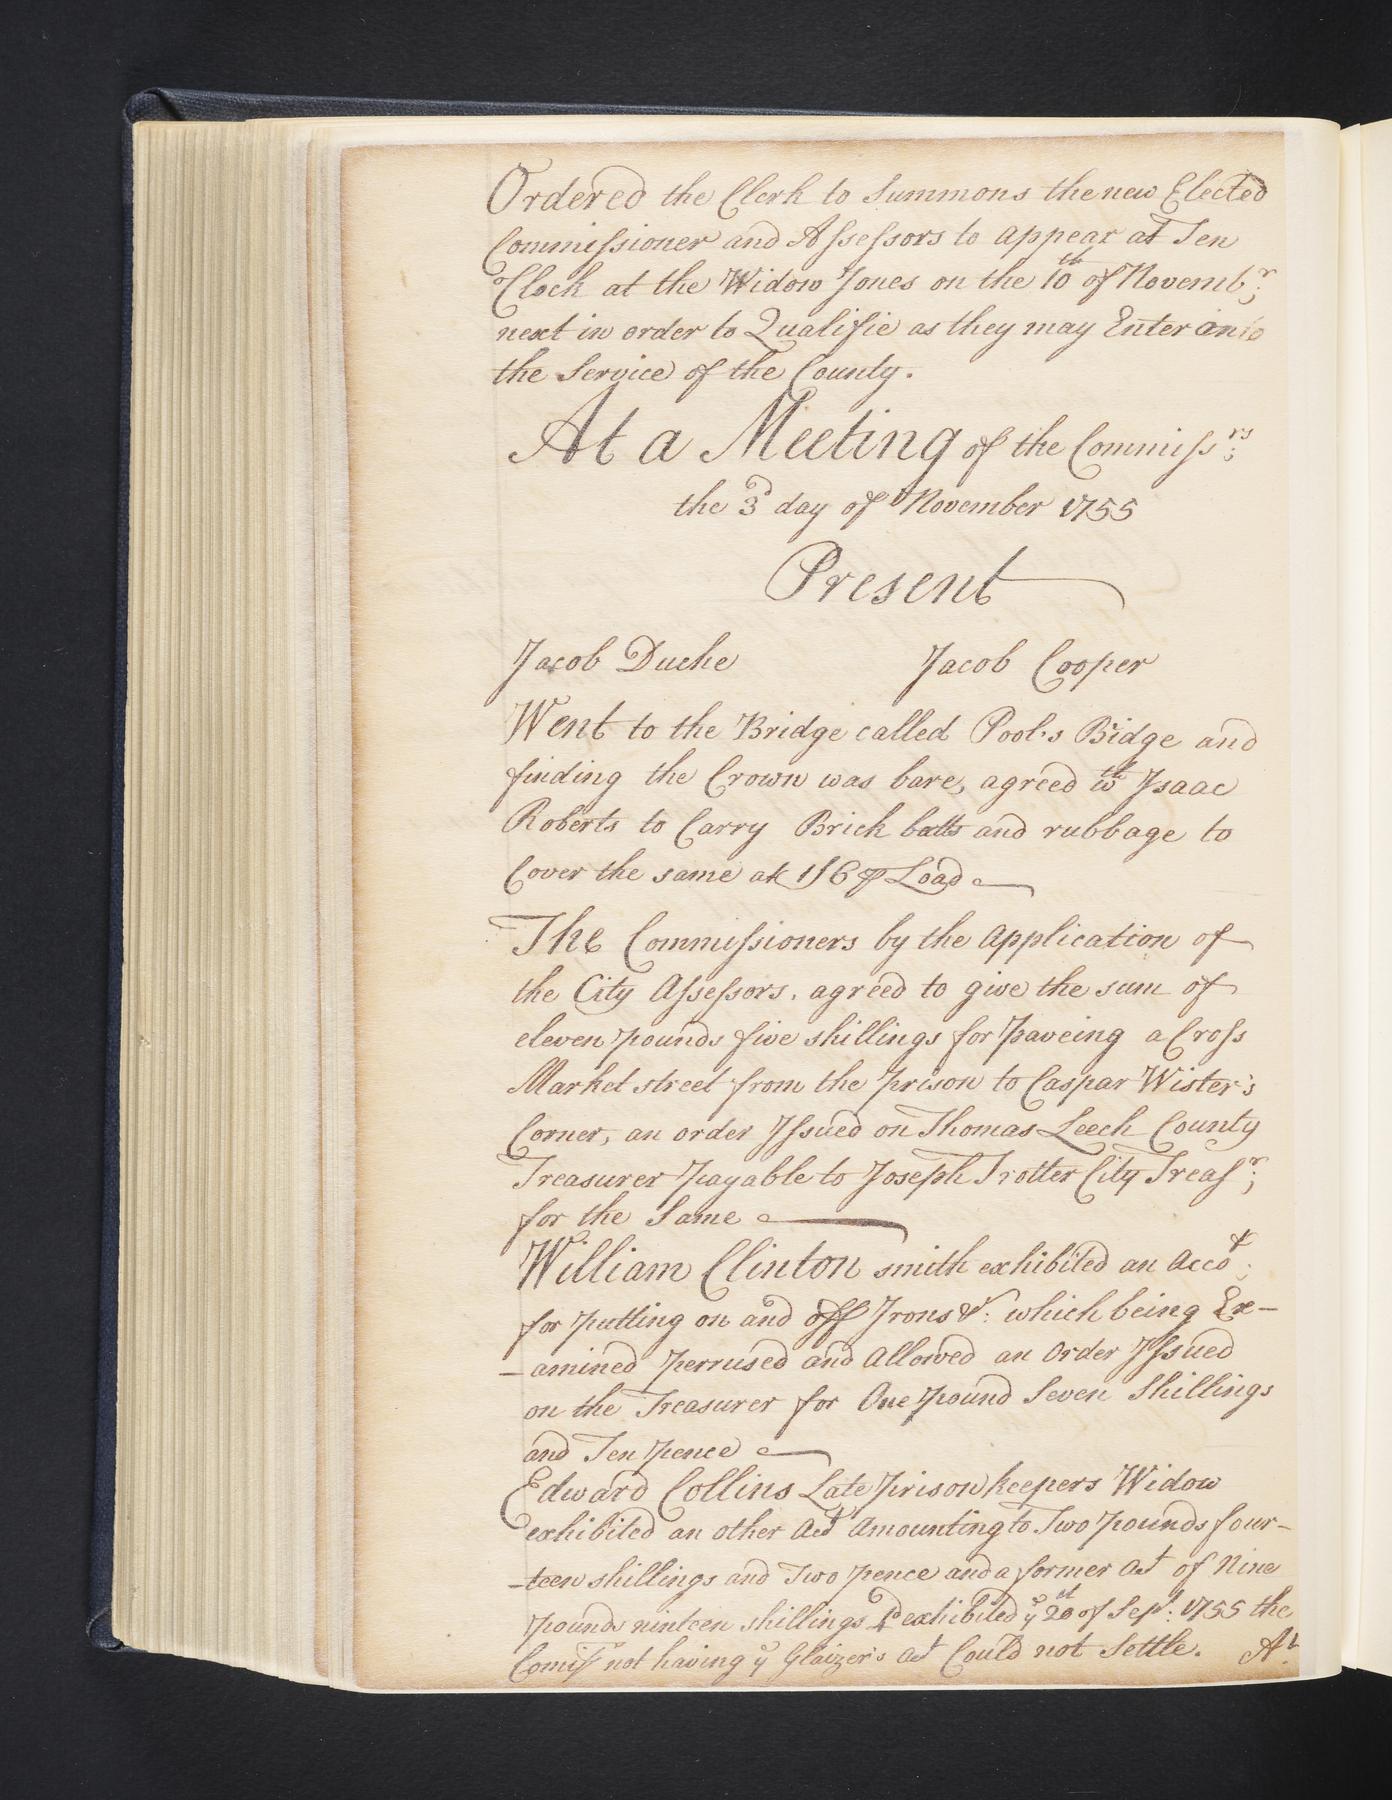 Ordered the Clerk to Summons the new Elected
Commissioner and Assessors to appear at Ten
oClock at the Widow Jones on the 10th of Novembr:
next in order to Qualifie as they may Enter into
the Service of the County.
At a Meeting of the Commissrs:
the 3d day of November 1755
Present
Jacob Duche Jacob Cooper
Went to the Bridge called Pool's Bridge and
finding the Crown was bare, agreed wth Isaac
Roberts to Carry Brick batts and rubbage to
Cover the same at 1/6 ⅌ Load
The Commissioners by the Application of
the City Assessors, agreed to give the sum of
eleven pounds five shillings for paveing a Cross
Market street from the prison to Caspar Wister's
Corner, an order Issued on Thomas Leech County
Treasurer payable to Joseph Trotter City Treasr:
for the Same
William Clinton smith exhibited an Accot:
for putting on and off Irons &c: which being Ex-
-amined perrused and allowed an Order Issued
on the Treasurer for One pound Seven Shillings
and Ten pence
Edward Collins Late prison keepers Widow
exhibited an other Act amounting to Two pounds four-
-teen shillings and Two pence and a former Act of Nine
pounds ninteen shillings exhibited ye of Sept: 1755 the
Comissrs not having ye Glaizer's Act Could not Settle. At